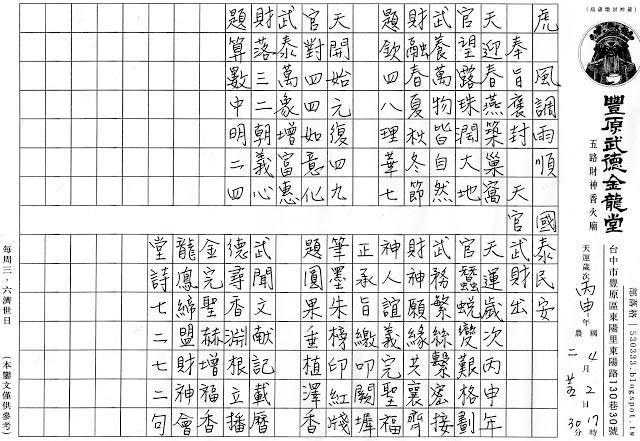 (葫蘆墩財神爺)
豐原武德金龍堂
五路財神香火廟
部落格│530333.blogspot.tw
台中市豐原區東陽里東陽路130巷30號
天運歲次丙申年
國 4月2日17時
農 二 廿五 30分
虎風調雨順國泰民安
奉旨褒封天官武財出
天迎春燕築巢窩
官望露珠潤大地
武養萬物皆自然
財融春夏秋冬節
題欽四八理華七
天開始元復四九
官對四四如意化
武泰萬象增富惠
財落三二朝義心
題算數中明二四
天運歲次丙申年
官蠶蛻變艱格劃
武務繁絲繫接
財神願緣共襄齊
神人誼義完聖福
正承旨繳叩闕墀
筆墨朱榜印紅牋
題圓果垂植澤香
武聞文献記載曆
德尋香淵根立播
金完聖赫增福香
龍鳳締盟財神會
堂詩七二七二句
每周三、六濟世日
(本鑾文僅供參考)